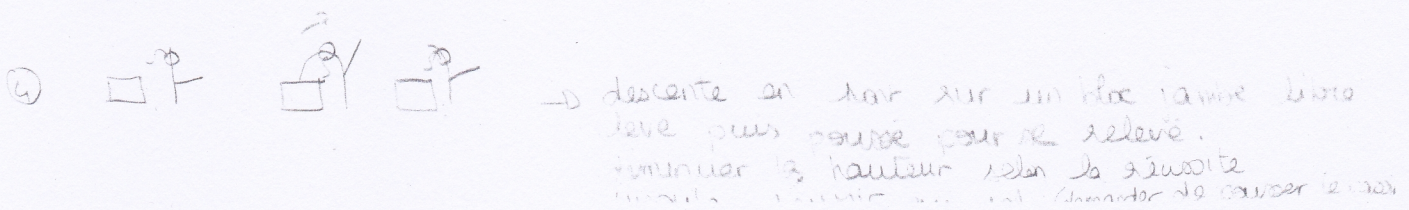 ④ → descente en noir sur un bloc jambe libre
levé puis poussé pour se relevé.
diminuer la hauteur selon la réussite
(demander de pousser